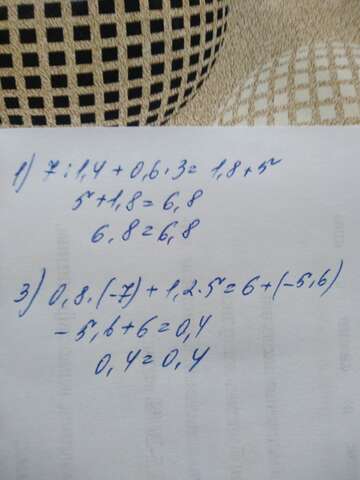 1) 7 : 1,4 + 0,6 · 3 = 1,8 + 5
5 + 1,8 = 6,8
6,8 = 6,8
3) 0,8 · (-7) + 1,2 · 5 = 6 + (-5,6)
- 5,6 + 6 = 0,4
0,4 = 0,4